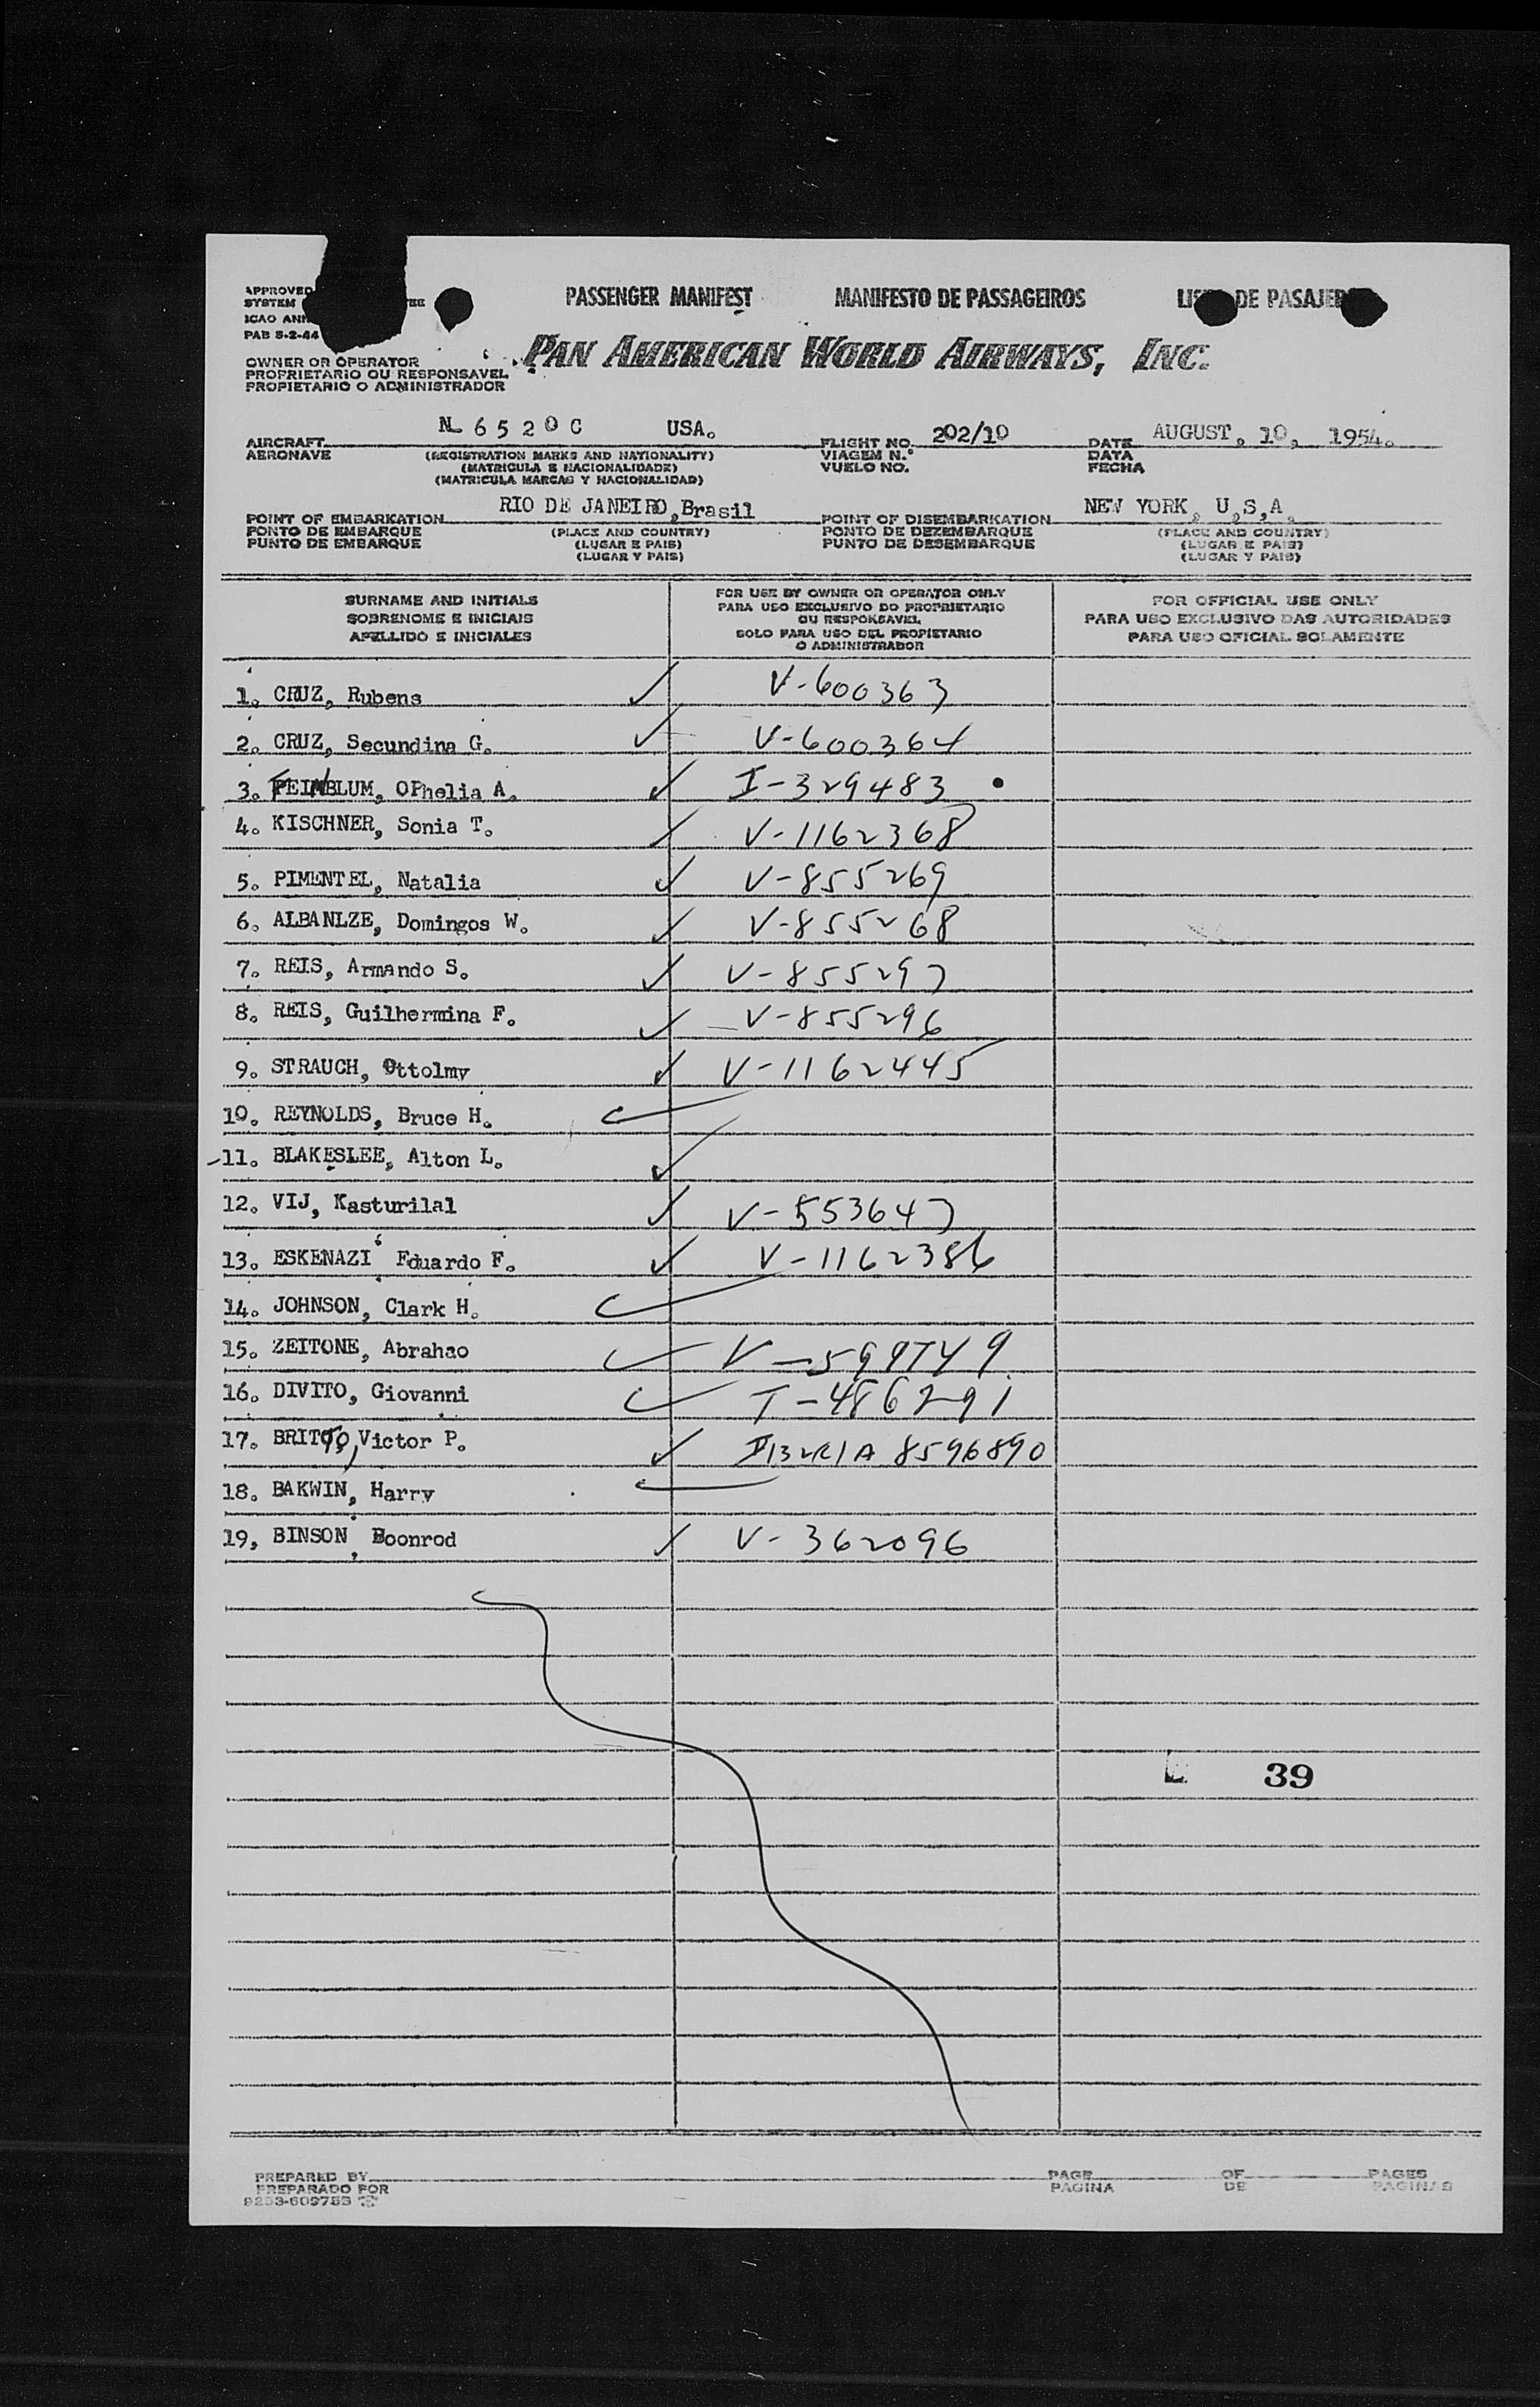 PASSENGER MANIFEST MANIFESTO DE PASSAGEIROS DE
APPROVED
SYSTEM
ICAO
PAB 5-2-44
PAN AMERICAN WORLD AIRWAYS, INC.
OWNER OR OPERATOR
PROPRIETARIO OU RESPONSAVEL
PROPIETARIO O ADMINISTRADOR
AIRCRAFT N 6520C USA. FLIGHT NO. 202/10 DATE AUGUST. 10, 1954.
AERONAVE (REGISTRATION MARKS AND NATIONALITY) VIAGEM N.° DATA
(MATRICULA E NACIONALIDADE) VUELO NO. FECHA
(MATRICULA MARCAS Y NACIONALIDAD)
POINT OF EMBARKATION RIO DE JANEIRO, Brasil POINT OF DISEMBARKATION NEW YORK, U,S,A,
PONTO DE EMBARQUE (PLACE AND COUNTRY) PONTO DE DEZEMBARQUE (PLACE AND COUNTRY)
PUNTO DE EMBARQUE (LUGAR E PAIS) PUNTO DE DESEMBARQUE (LUGAR E PAIS)
(LUGAR Y PAIS) (LUGAR Y PAIS)
SURNAME AND INITIALS
SOBRENOME E INICIAIS
APELLIDO E INICIALES
FOR USE BY OWNER OR OPERATOR ONLY
PARA USO EXCLUSIVO DO PROPRIETARIO
OU RESPONSAVEL
SOLO PARA USO DEL PROPIETARIO
O ADMINISTRADOR
FOR OFFICIAL USE ONLY
PARA USO EXCLUSIVO DAS AUTORIDADES
PARA USO OFICIAL SOLAMENTE
1. CRUZ, Rubens V-600363
2. CRUZ, Secundina G. V-600364
3. FEINBLUM, OPhelia A. I-329483
4. KISCHNER, Sonia T. V-1162368
5. PIMENTEL, Natalia V-855269
6. ALBANLZE, Domingos W. V-855268
7. REIS, Armando S. V-855297
8. REIS, Guilhermina F. V-855296
9. STRAUCH, Ottolmy V-1162445
10. REYNOLDS, Bruce H.
11. BLAKESLEE, Alton L.
12. VIJ, Kasturilal V-553647
13. ESKENAZI, Eduardo F. V-1162386
14. JOHNSON, Clark H.
15. ZEITONE, Abrahao V-599749
16. DIVITO, Giovanni I-486291
17. BRITTO, Victor P. 8596890
18. BAKWIN, Harry
19, BINSON, Boonrod V-362096
39
PREPARED BY PAGE OF PAGES
PREPARADO POR PAGINA DE PAGINAS